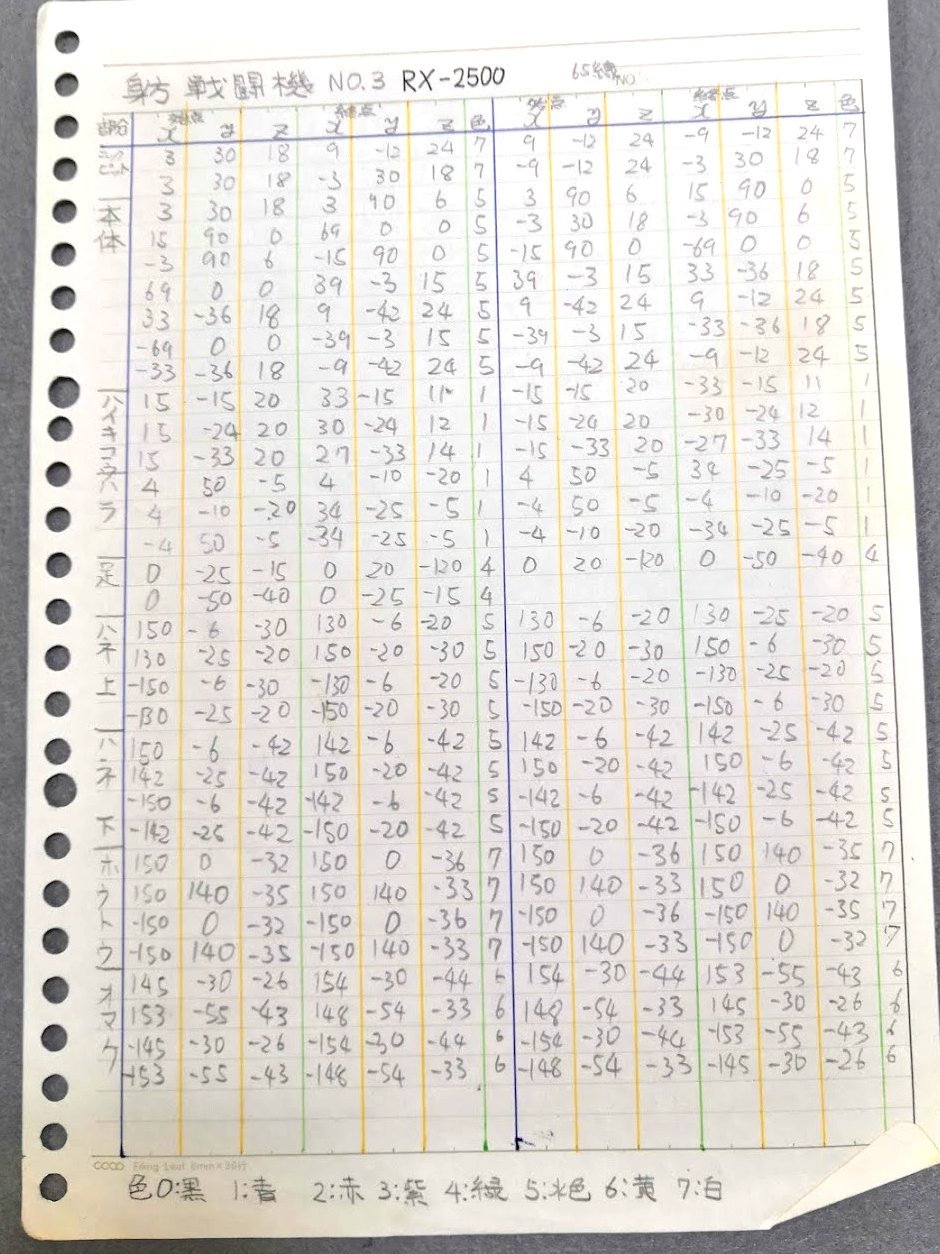 身方 戦闘機 NO.3 RX-2500 65線
NO.
始点 終点 始点 終点
部分 x y z x y z 色 x y z x y z 色
コックピット 3 30 18 9 -12 24 7 9 -12 24 -9 -12 24 7
3 30 18 -3 30 18 7 -9 -12 24 -3 30 18 7
本体 3 30 18 3 90 6 5 3 90 6 15 90 0 5
15 90 0 69 0 0 5 -3 30 18 -3 90 6 5
-3 90 6 -15 90 0 5 -15 90 0 -69 0 0 5
69 0 0 39 -3 15 5 39 -3 15 33 -36 18 5
33 -36 18 9 -42 24 5 9 -42 24 9 -12 24 5
-69 0 0 -39 -3 15 5 -39 -3 15 -33 -36 18 5
-33 -36 18 -9 -42 24 5 -9 -42 24 -9 -12 24 5
ハイキコウ 15 -15 20 33 -15 11 1 -15 -15 20 -33 -15 11 1
15 -24 20 30 -24 12 1 -15 -24 20 -30 -24 12 1
15 -33 20 27 -33 14 1 -15 -33 20 -27 -33 14 1
ハラ 4 50 -5 4 -10 -20 1 4 50 -5 34 -25 -5 1
4 -10 -20 34 -25 -5 1 -4 50 -5 -4 -10 -20 1
-4 50 -5 -34 -25 -5 1 -4 -10 -20 -34 -25 -5 1
足 0 -25 -15 0 20 -120 4 0 20 -120 0 -50 -40 4
0 -50 -40 0 -25 -15 4
ハネ上 150 -6 -30 130 -6 -20 5 130 -6 -20 130 -25 -20 5
130 -25 -20 150 -20 -30 5 150 -20 -30 150 -6 -30 5
-150 -6 -30 -130 -6 -20 5 -130 -6 -20 -130 -25 -20 5
-130 -25 -20 -150 -20 -30 5 -150 -20 -30 -150 -6 -30 5
ハネ下 150 -6 -42 142 -6 -42 5 142 -6 -42 142 -25 -42 5
142 -25 -42 150 -20 -42 5 150 -20 -42 150 -6 -42 5
-150 -6 -42 -142 -6 -42 5 -142 -6 -42 -142 -25 -42 5
-142 -25 -42 -150 -20 -42 5 -150 -20 -42 -150 -6 -42 5
ホウトウ 150 0 -32 150 0 -36 7 150 0 -36 150 140 -35 7
150 140 -35 150 140 -33 7 150 140 -33 150 0 -32 7
-150 0 -32 -150 0 -36 7 -150 0 -36 -150 140 -35 7
-150 140 -35 -150 140 -33 7 -150 140 -33 -150 0 -32 7
オマケ 145 -30 -26 154 -30 -44 6 154 -30 -44 153 -55 -43 6
153 -55 -43 148 -54 -33 6 148 -54 -33 145 -30 -26 6
-145 -30 -26 -154 -30 -44 6 -154 -30 -44 -153 -55 -43 6
-153 -55 -43 -148 -54 -33 6 -148 -54 -33 -145 -30 -26 6
Filing Leaf 6mm×36行
色0:黒 1:青 2:赤 3:紫 4:緑 5:水色 6:黄 7:白